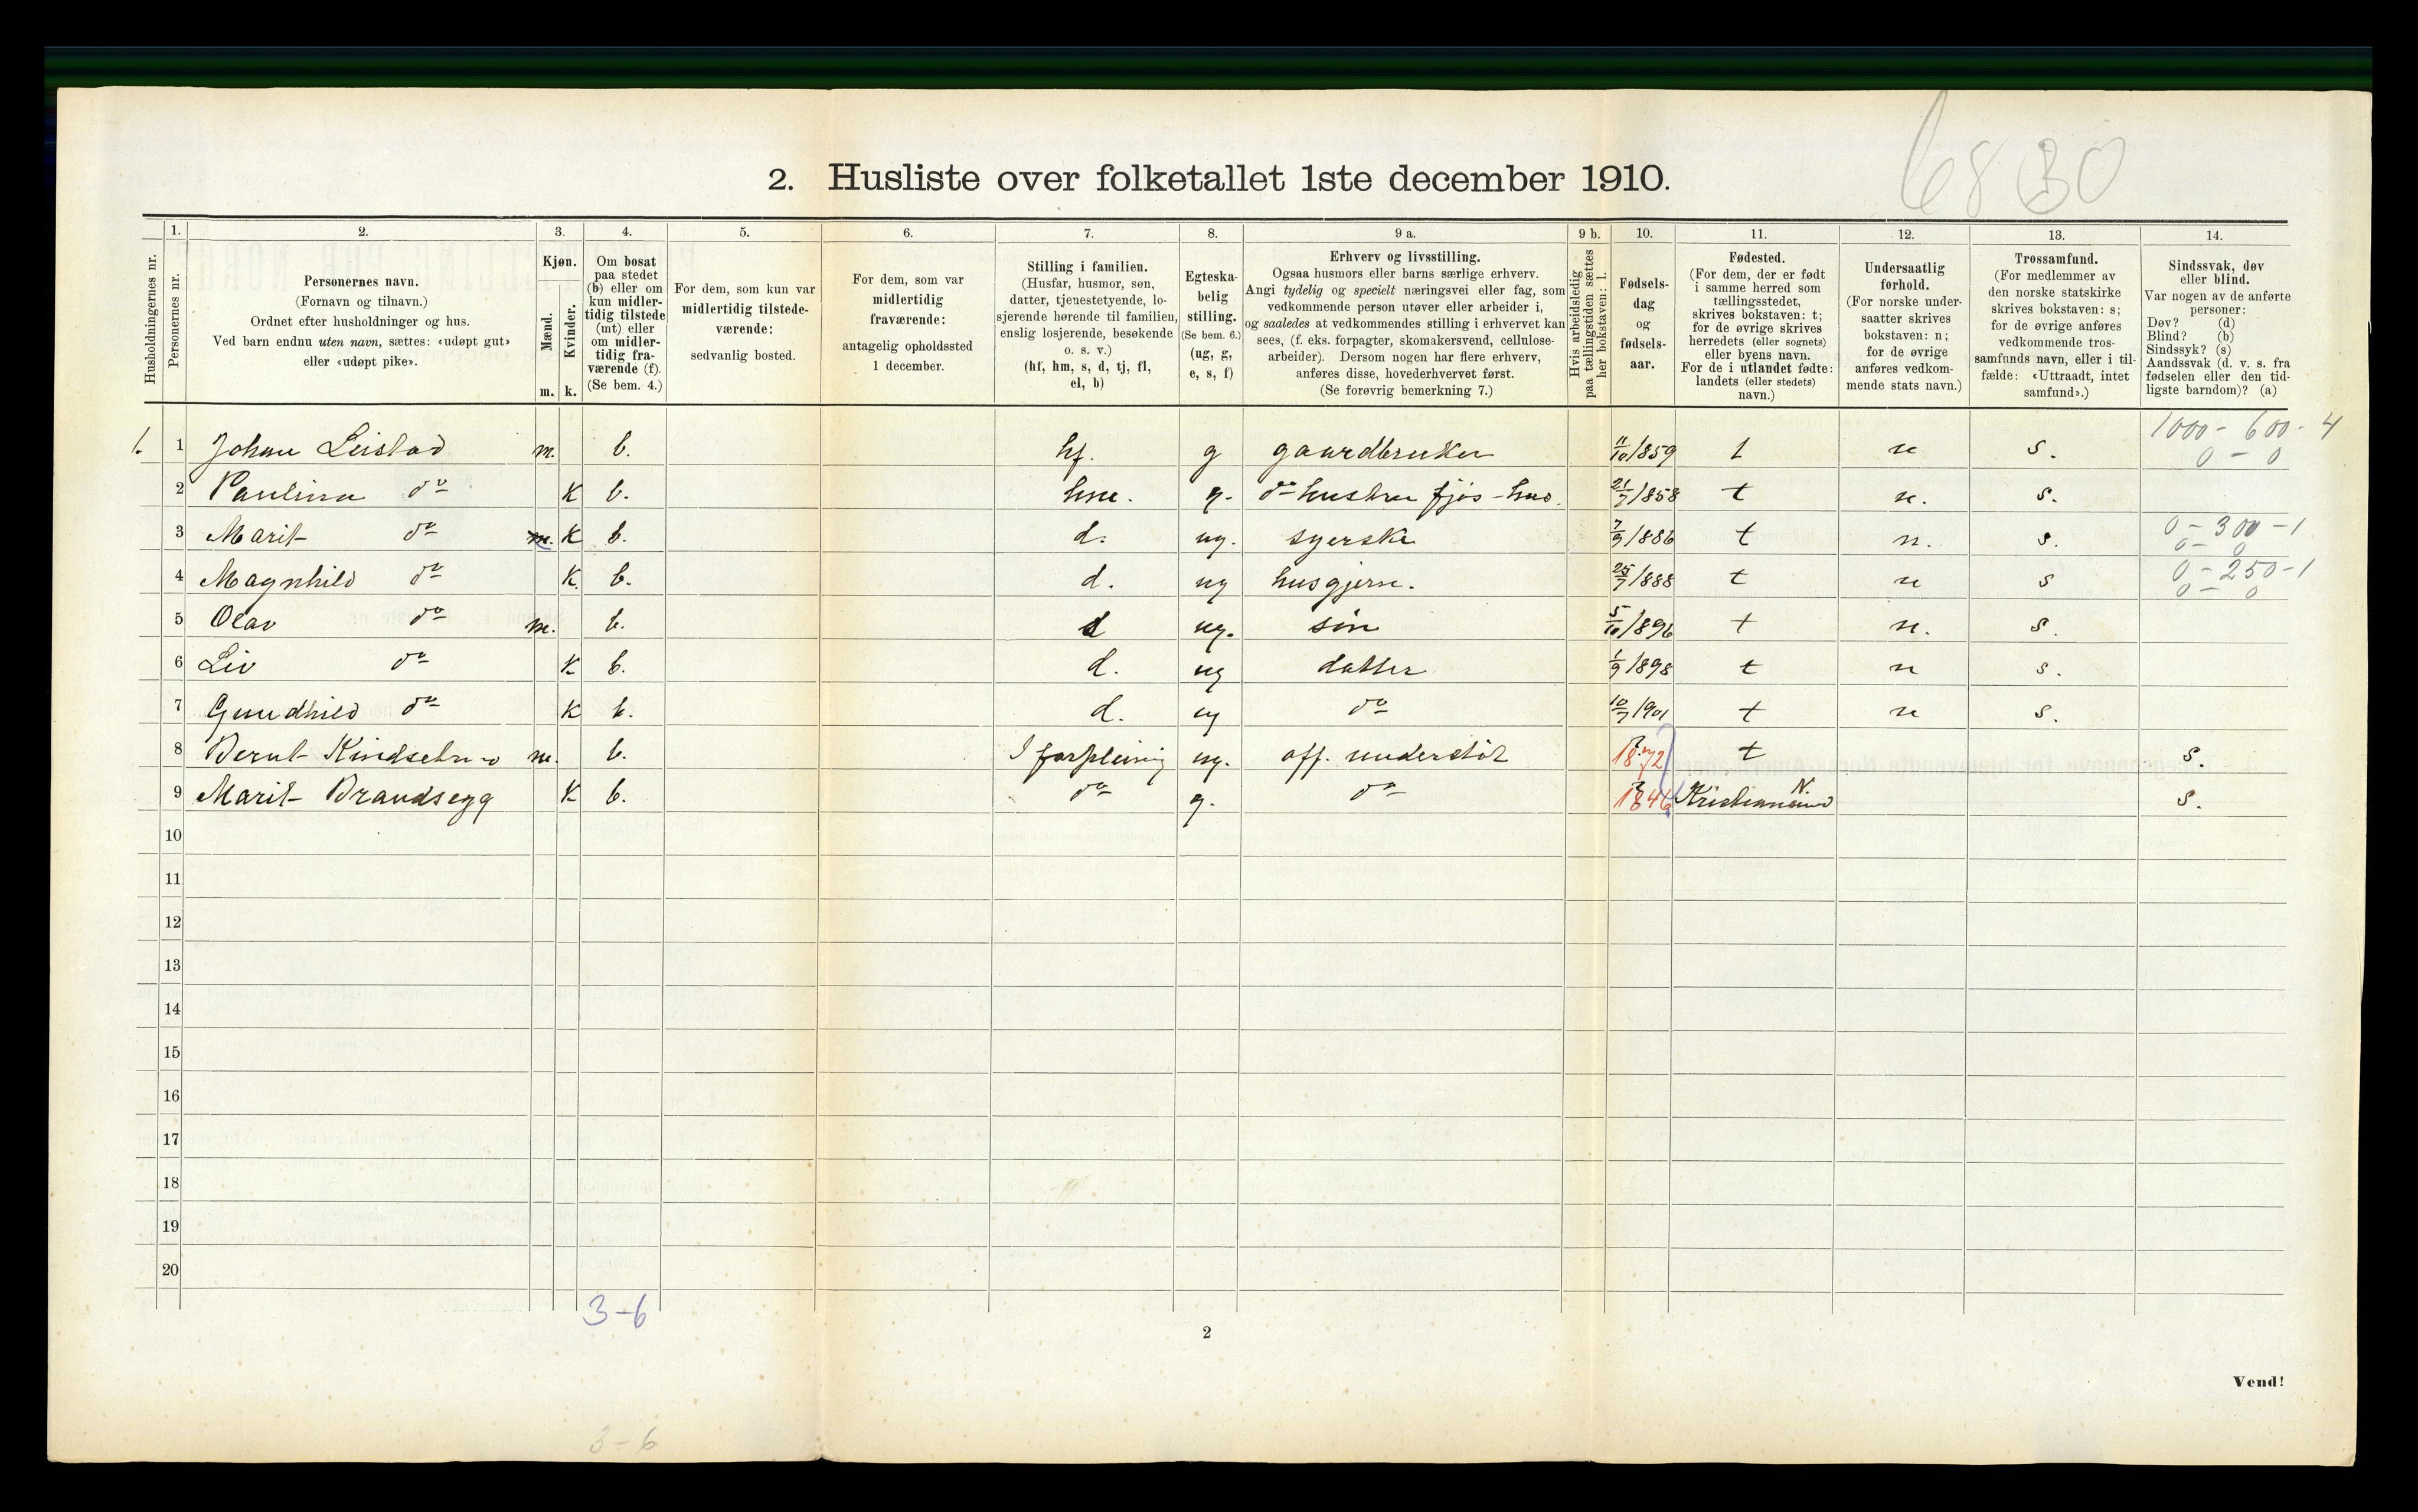 6830
2. Husliste over folketallet 1ste december 1910.
Husholdningernes nr.
1.
Personernes nr.
2.
Personernes navn.
(Fornavn og tilnavn.)
Ordnet efter husholdninger og hus.
Ved barn endnu uten navn, sættes: «udøpt gut»
eller «udøpt pike».
3.
Kjøn.
Mænd.
Kvinder.
m. k.
4.
Om bosat
paa stedet
(b) eller om
kun midler-
tidig tilstede
(mt) eller
om midler-
tidig fra-
værende (f).
(Se bem. 4.)
5.
For dem, som kun var
midlertidig tilstede-
værende:
sedvanlig bosted.
6.
For dem, som var
midlertidig
fraværende:
antagelig opholdssted
1 december.
7.
Stilling i familien.
(Husfar, husmor, søn,
datter, tjenestetyende, lo-
sjerende hørende til familien,
enslig losjerende, besøkende
o. s. v.)
(hf, hm, s, d, tj, fl,
el, b)
8.
Egteska-
belig
stilling.
(Se bem. 6.)
(ug, g,
e, s, f)
9 a.
Erhverv og livsstilling.
Ogsaa husmors eller barns særlige erhverv.
Angi tydelig og specielt næringsvei eller fag, som
vedkommende person utøver eller arbeider i,
og saaledes at vedkommendes stilling i erhvervet kan
sees, (f. eks. forpagter, skomakersvend, cellulose-
arbeider). Dersom nogen har flere erhverv,
anføres disse, hovederhvervet først.
(Se forøvrig bemerkning 7.)
9 b.
Hvis arbeidsledig
paa tællingstiden sættes
her bokstaven: l.
10.
Fødsels-
dag
og
fødsels-
aar.
11.
Fødested.
(For dem, der er født
i samme herred som
tællingsstedet,
skrives bokstaven: t;
for de øvrige skrives
herredets (eller sognets)
eller byens navn.
For de i utlandet fødte:
landets (eller stedets)
navn.)
12.
Undersaatlig
forhold.
(For norske under-
saatter skrives
bokstaven: n;
for de øvrige
anføres vedkom-
mende stats navn.)
13.
Trossamfund.
(For medlemmer av
den norske statskirke
skrives bokstaven: s;
for de øvrige anføres
vedkommende tros-
samfunds navn, eller i til-
fælde: «Uttraadt, intet
samfund».)
14.
Sindssvak, døv
eller blind.
Var nogen av de anførte
personer:
Døv? (d)
Blind? (b)
Sindssyk? (s)
Aandssvak (d. v. s. fra
fødselen eller den tid-
ligste barndom)? (a)
1000 - 600 - 4
1. 1 Johan Leistad m. b. hf. g gaardbruker 11/10 1859 t n s. 0 - 0
2 Paulina do K b. hm. g. do hustru fjøs - hus. 21/7 1858 t n. s.
0 - 300 - 1
3 Marit do m. K b. d. ug. syerske 7/9 1886 t n. s. 0 - 0
0 - 250 - 1
4 Magnhild do K b. d. ug husgjern. 25/7 1888 t n s 0 - 0
5 Olav do m. b. s ug. søn 5/10 1896 t n. s.
6 Liv do K b. d. ug datter 1/9 1898 t n s.
7 Gundhild do K b. d. ug do 10/7 1901 t n s.
8 Bernt m. b. I forpleining ug. off. understöt 1872 t s.
9 Marit Brandsegg K b. do g. do 1846 Kristiansund N. s.
10
11
12
13
14
15
16
17
18
19
20
3-6
2
Vend!
3-6